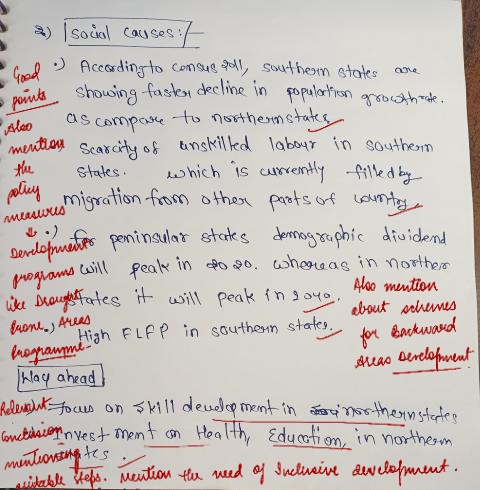 3) Social causes:-
Good points
.) According to census 2011, southern states are
showing faster decline in population growth rate.
as compare to northern states
Also mention the policy measures
Scarcity of unskilled labour in southern
states. which is currently filled by
migration from other parts of country
.) for peninsular states demographic dividend
will peak in 2020. whereas in norther
states it will peak in 2040.
Development programs like Drought Prone Areas Programme-
.) High FLFP in southern states,
Also mention
about schemes
for Backward
Areas Development
Way ahead
.) Focus on skill development in northern states
Investment on Health, Education, in northern
Relevant
Conclusion
mentioning
suitable steps. Mention the need of Inclusive development.